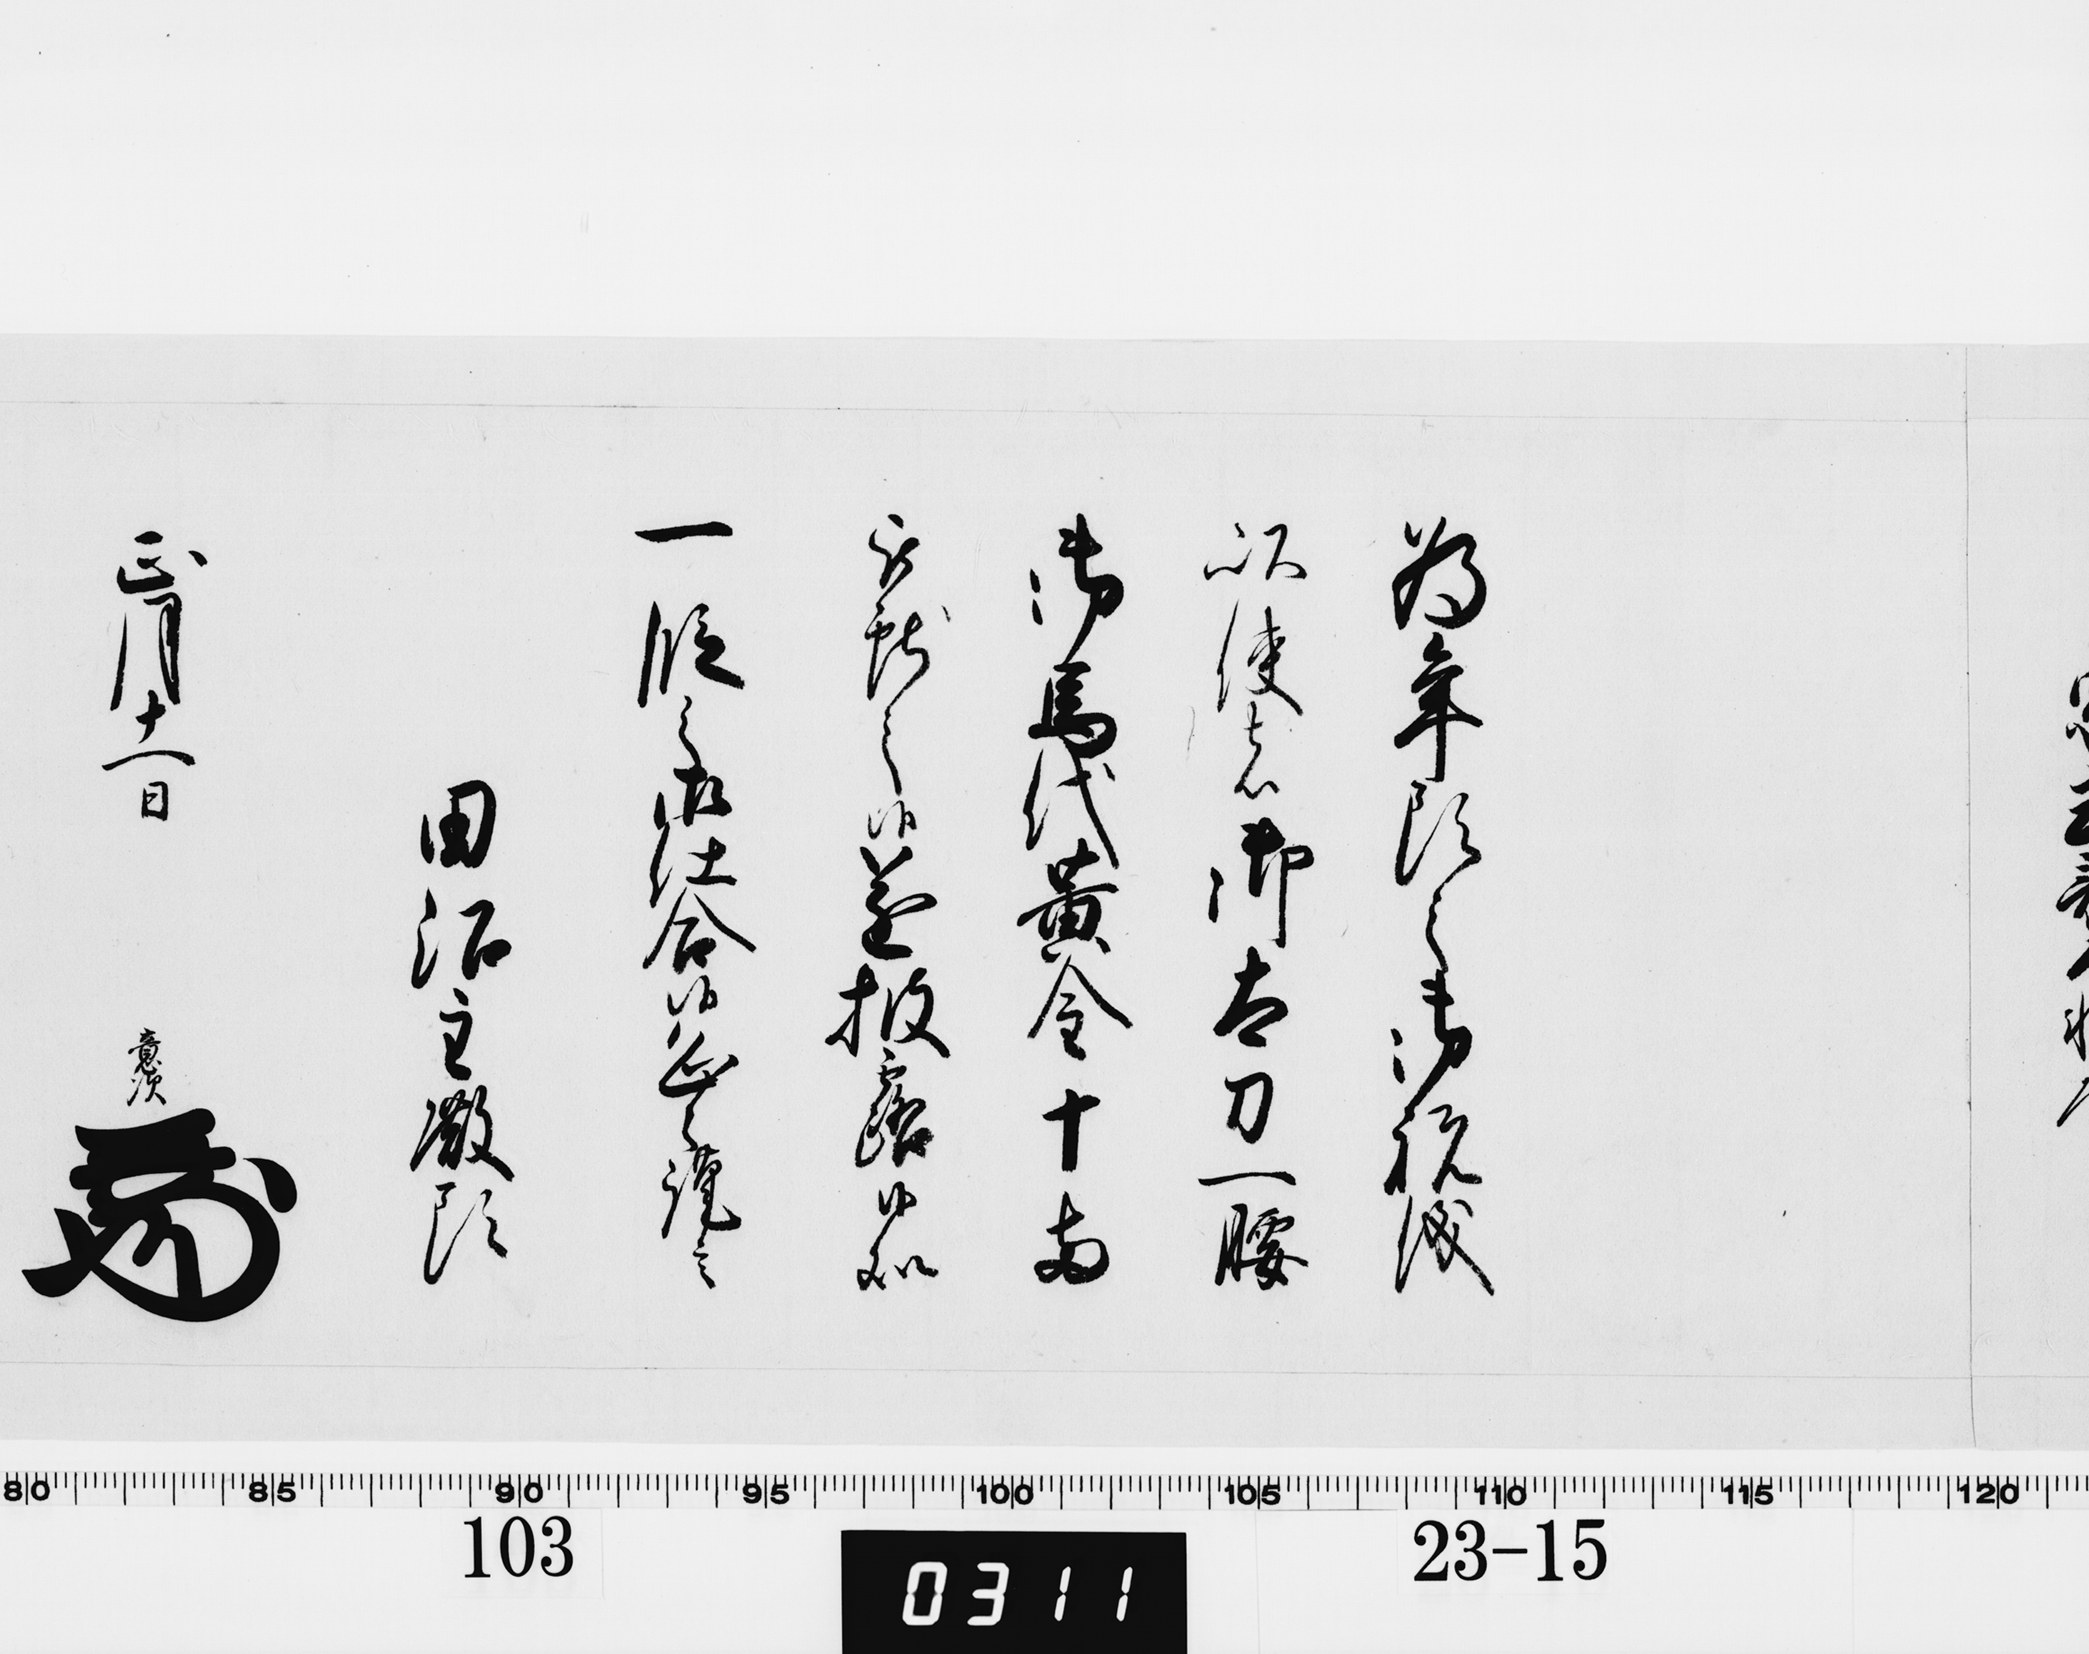 為年頭之御祝儀
以使者御太刀一腰
御馬代黄金十両
被献之候遂披露候処
一段之御仕合候恐々謹言
田沼主殿頭
正月十一日
意次
80 85 90 95 100 105 110 115 120
103
0311
23-15